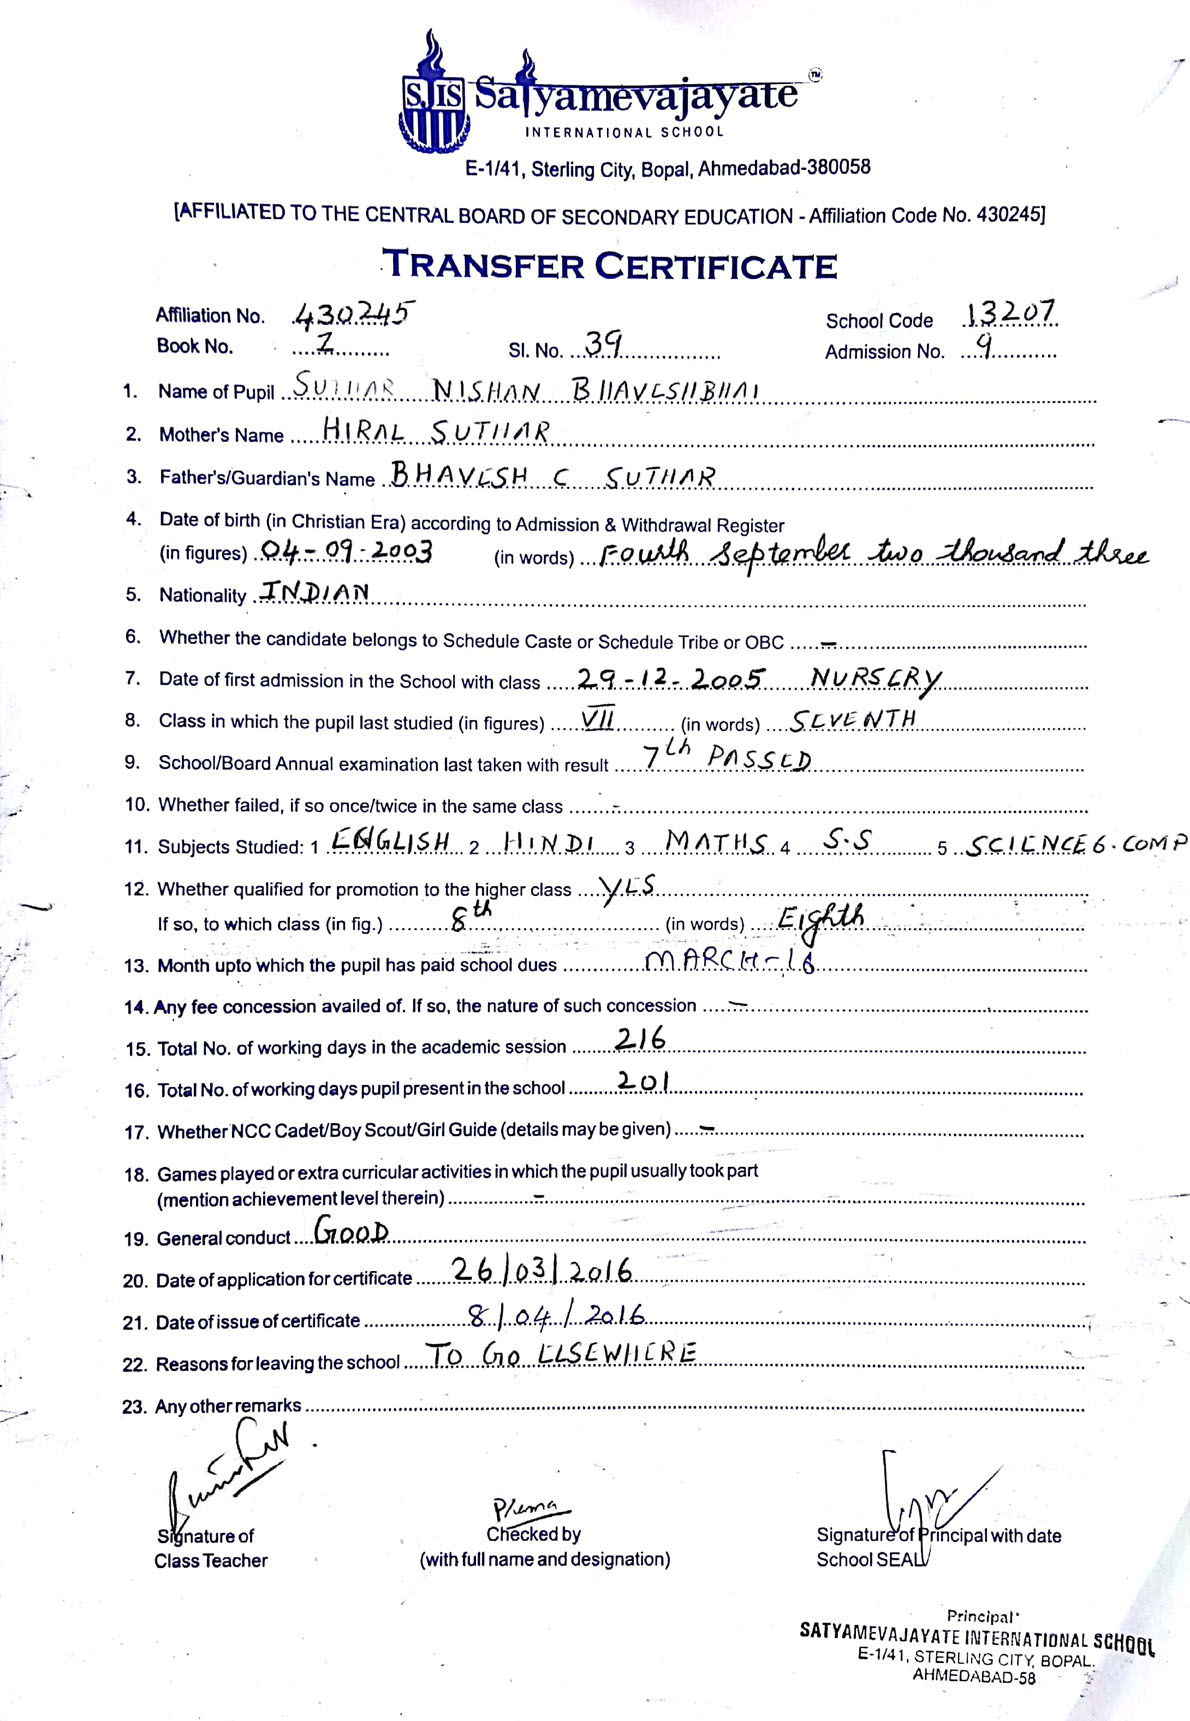 SJIS Satyamevajayate TM
INTERNATIONAL SCHOOL
E-1/41, Sterling City, Bopal, Ahmedabad-380058
[AFFILIATED TO THE CENTRAL BOARD OF SECONDARY EDUCATION - Affiliation Code No. 430245]
TRANSFER CERTIFICATE
Affiliation No. 430245 School Code 13207
Book No. 2 Sl. No. 39 Admission No. 9
1. Name of Pupil SUTHAR NISHAN BHAVESHBHAI
2. Mother's Name HIRAL SUTHAR
3. Father's/Guardian's Name BHAVESH C SUTHAR
4. Date of birth (in Christian Era) according to Admission & Withdrawal Register
(in figures) 04-09-2003 (in words) Fourth September two thousand three
5. Nationality INDIAN
6. Whether the candidate belongs to Schedule Caste or Schedule Tribe or OBC –
7. Date of first admission in the School with class 29-12-2005 NURSERY
8. Class in which the pupil last studied (in figures) VII (in words) SEVENTH
9. School/Board Annual examination last taken with result 7th PASSED
10. Whether failed, if so once/twice in the same class -
11. Subjects Studied: 1 ENGLISH 2 HINDI 3 MATHS 4 S.S 5 SCIENCE 6. COMP
12. Whether qualified for promotion to the higher class YES
If so, to which class (in fig.) 8th (in words) Eighth
13. Month upto which the pupil has paid school dues MARCH-16
14. Any fee concession availed of. If so, the nature of such concession –
15. Total No. of working days in the academic session 216
16. Total No. of working days pupil present in the school 201
17. Whether NCC Cadet/Boy Scout/Girl Guide (details may be given) –
18. Games played or extra curricular activities in which the pupil usually took part
(mention achievement level therein) –
19. General conduct GOOD
20. Date of application for certificate 26/03/2016
21. Date of issue of certificate 8/04/2016
22. Reasons for leaving the school TO GO ELSEWHERE
23. Any other remarks
Prema
Signature of Checked by Signature of Principal with date
Class Teacher (with full name and designation) School SEAL
Principal
SATYAMEVAJAYATE INTERNATIONAL SCHOOL
E-1/41, STERLING CITY, BOPAL.
AHMEDABAD-58